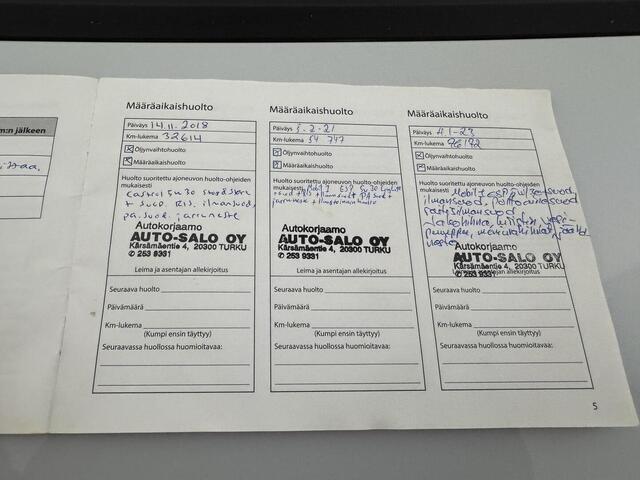 m:n jälkeen
Määräaikaishuolto
Päiväys 14.11.2018
Km-lukema 32614
☒ Öljynvaihtohuolto
☒ Määräaikaishuolto
Huolto suoritettu ajoneuvon huolto-ohjeiden
mukaisesti
Castrol 5w30
+ suod. ilmansuod,
jarruneste
Autokorjaamo
AUTO-SALO OY
Kärsämäentie 4, 20300 TURKU
✆ 253 9331
Leima ja asentajan allekirjoitus
Seuraava huolto
Päivämäärä
Km-lukema
(Kumpi ensin täyttyy)
Seuraavassa huollossa huomioitavaa:
Määräaikaishuolto
Päiväys 3.2.21
Km-lukema 54 747
☒ Öljynvaihtohuolto
☒ Määräaikaishuolto
Huolto suoritettu ajoneuvon huolto-ohjeiden
mukaisesti Mobil 1 ESP 5w30
jarruneste +
Autokorjaamo
AUTO-SALO OY
Kärsämäentie 4, 20300 TURKU
✆ 253 9331
Leima ja asentajan allekirjoitus
Seuraava huolto
Päivämäärä
Km-lukema
(Kumpi ensin täyttyy)
Seuraavassa huollossa huomioitavaa:
Määräaikaishuolto
Päiväys 1-23
Km-lukema 96192
☒ Öljynvaihtohuolto
☒ Määräaikaishuolto
Huolto suoritettu ajoneuvon huolto-ohjeiden
mukaisesti Mobil 1 ESP
ilmansuod, polttoainesuod
raitisilmansuod,
Jakohihna, kiristin, vesi-
pumppu,
Autokorjaamo
AUTO-SALO OY
Kärsämäentie 4, 20300 TURKU
✆ 253 9331
Leima ja asentajan allekirjoitus
Seuraava huolto
Päivämäärä
Km-lukema
(Kumpi ensin täyttyy)
Seuraavassa huollossa huomioitavaa:
5